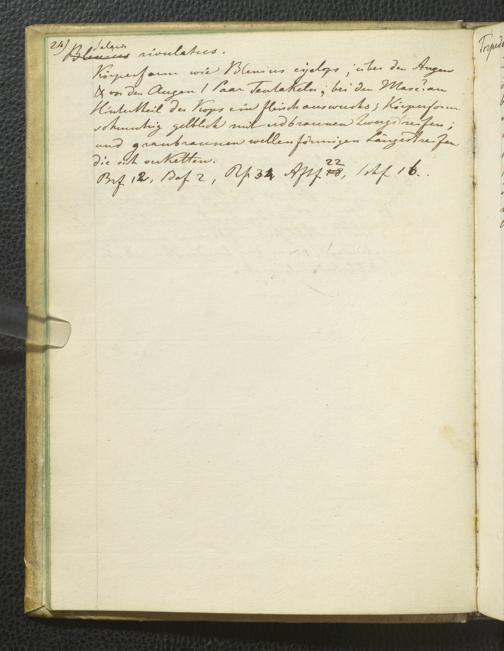 24) Salarias
Blennius rivulatus.
Körperform wie Blennius cyclops; über den Augen
& vor den Augen 1 Paar Tentakeln; bei den Mascu
Hinterkeil des Kopfs ein fleischauswuchs; Körperform
schmutzig gelblich mit erdbraunen Zwergstreifen;
und graubraunen wellenförmigen Längestreifen
die sich verketten.
Brf. 12, Baf 2, Rf 34 Aff 22 18, schf. 16.
Torped